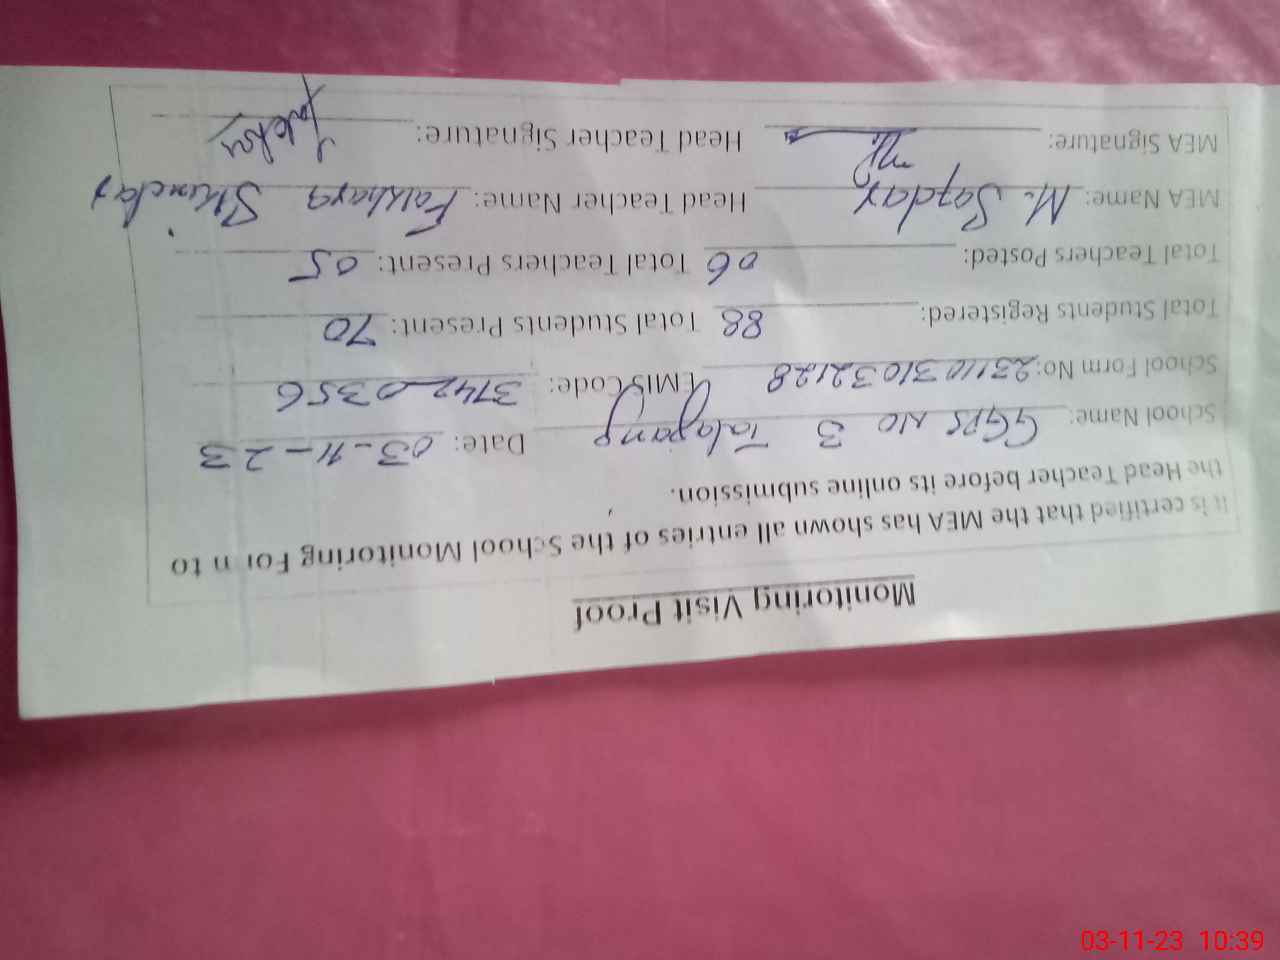 Monitoring Visit Proof
It is certified that the MEA has shown all entries of the School Monitoring Form to
the Head Teacher before its online submission.
School Name: GGPS NO 3 Talagang Date: 03-11-23
School Form No: 2311031032128 EMIS Code: 37420356
Total Students Registered: 88 Total Students Present: 70
Total Teachers Posted: 06 Total Teachers Present: 05
MEA Name: M. Safdar Head Teacher Name: Fakhara
MEA Signature: Head Teacher Signature:
03-11-23 10:39